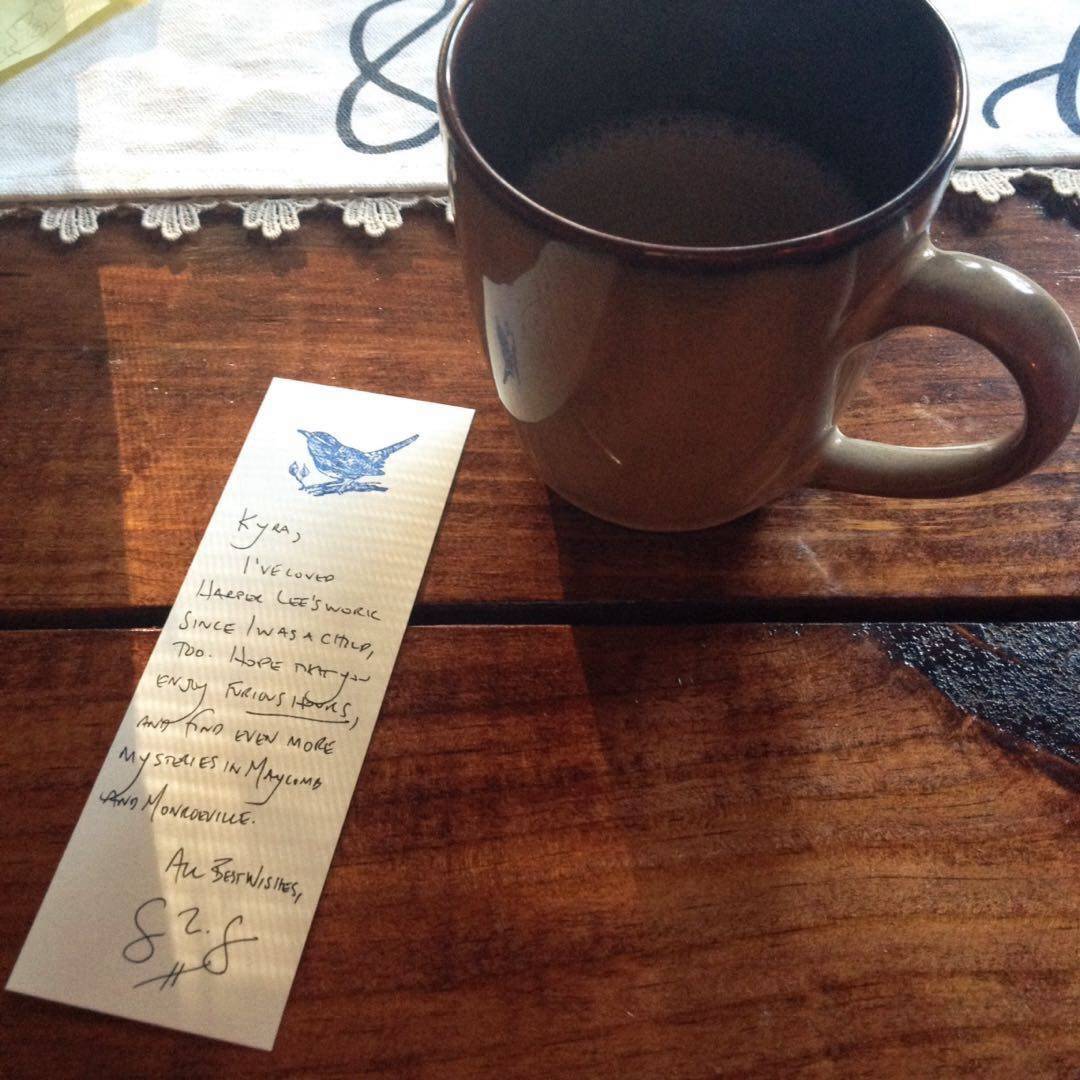 &
KYRA,
I'VE LOVED
HARPER LEE'S WORK
SINCE I WAS A CHILD,
TOO. HOPE THAT YOU
ENJOY FURIOUS HOURS,
AND FIND EVEN MORE
MYSTERIES IN MAYCOMB
AND MONROEVILLE.
ALL BEST WISHES,